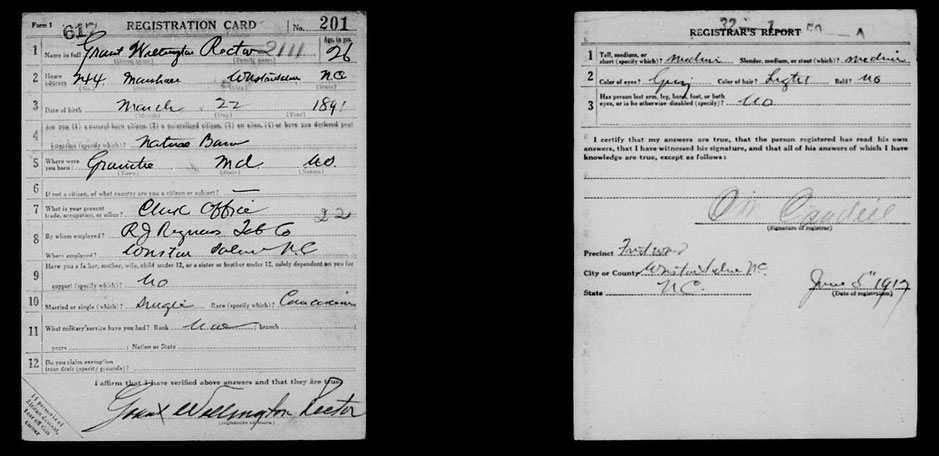 Form 1 617 REGISTRATION CARD No. 201
1 Name in full Grant Wellington Rector 2111 Age, in yrs. 26
(Given name) (Family name)
2 Home address 244 Winston Salem N.C.
(No.) (Street) (City) (State)
3 Date of birth March 22 1891
(Month) (Day) (Year)
4 Are you (1) a natural-born citizen, (2) a naturalized citizen, (3) an alien, (4) or have you declared your
intention (specify which)? Natural Born
5 Where were you born? Granite Md
(Town) (State) (Nation)
6 If not a citizen, of what country are you a citizen or subject?
7 What is your present trade, occupation, or office? Clerk Office 22
8 By whom employed? RJ Reynolds Tob Co
Where employed? Winston Salem N.C.
9 Have you a father, mother, wife, child under 12, or a sister or brother under 12, solely dependent on you for
support (specify which)? No
10 Married or single (which)? Single Race (specify which)? Caucasian
11 What military service have you had? Rank None ; branch
years ; Nation or State
12 Do you claim exemption from draft (specify grounds)?
I affirm that I have verified above answers and that they are true.
Grant Wellington Rector
(Signature or mark)
If person is of African descent, tear off this corner
32 1 50 A
REGISTRAR'S REPORT
1 Tall, medium, or short (specify which)? Medium Slender, medium, or stout (which)? Medium
2 Color of eyes? Grey Color of hair? Light Bald? No
3 Has person lost arm, leg, hand, foot, or both eyes, or is he otherwise disabled (specify)? No
I certify that my answers are true, that the person registered has read his own
answers, that I have witnessed his signature, and that all of his answers of which I have
knowledge are true, except as follows:
Caudill
(Signature of registrar)
Precinct First Ward
City or County Winston Salem N.C.
State N.C. June 5" 1917
(Date of registration)